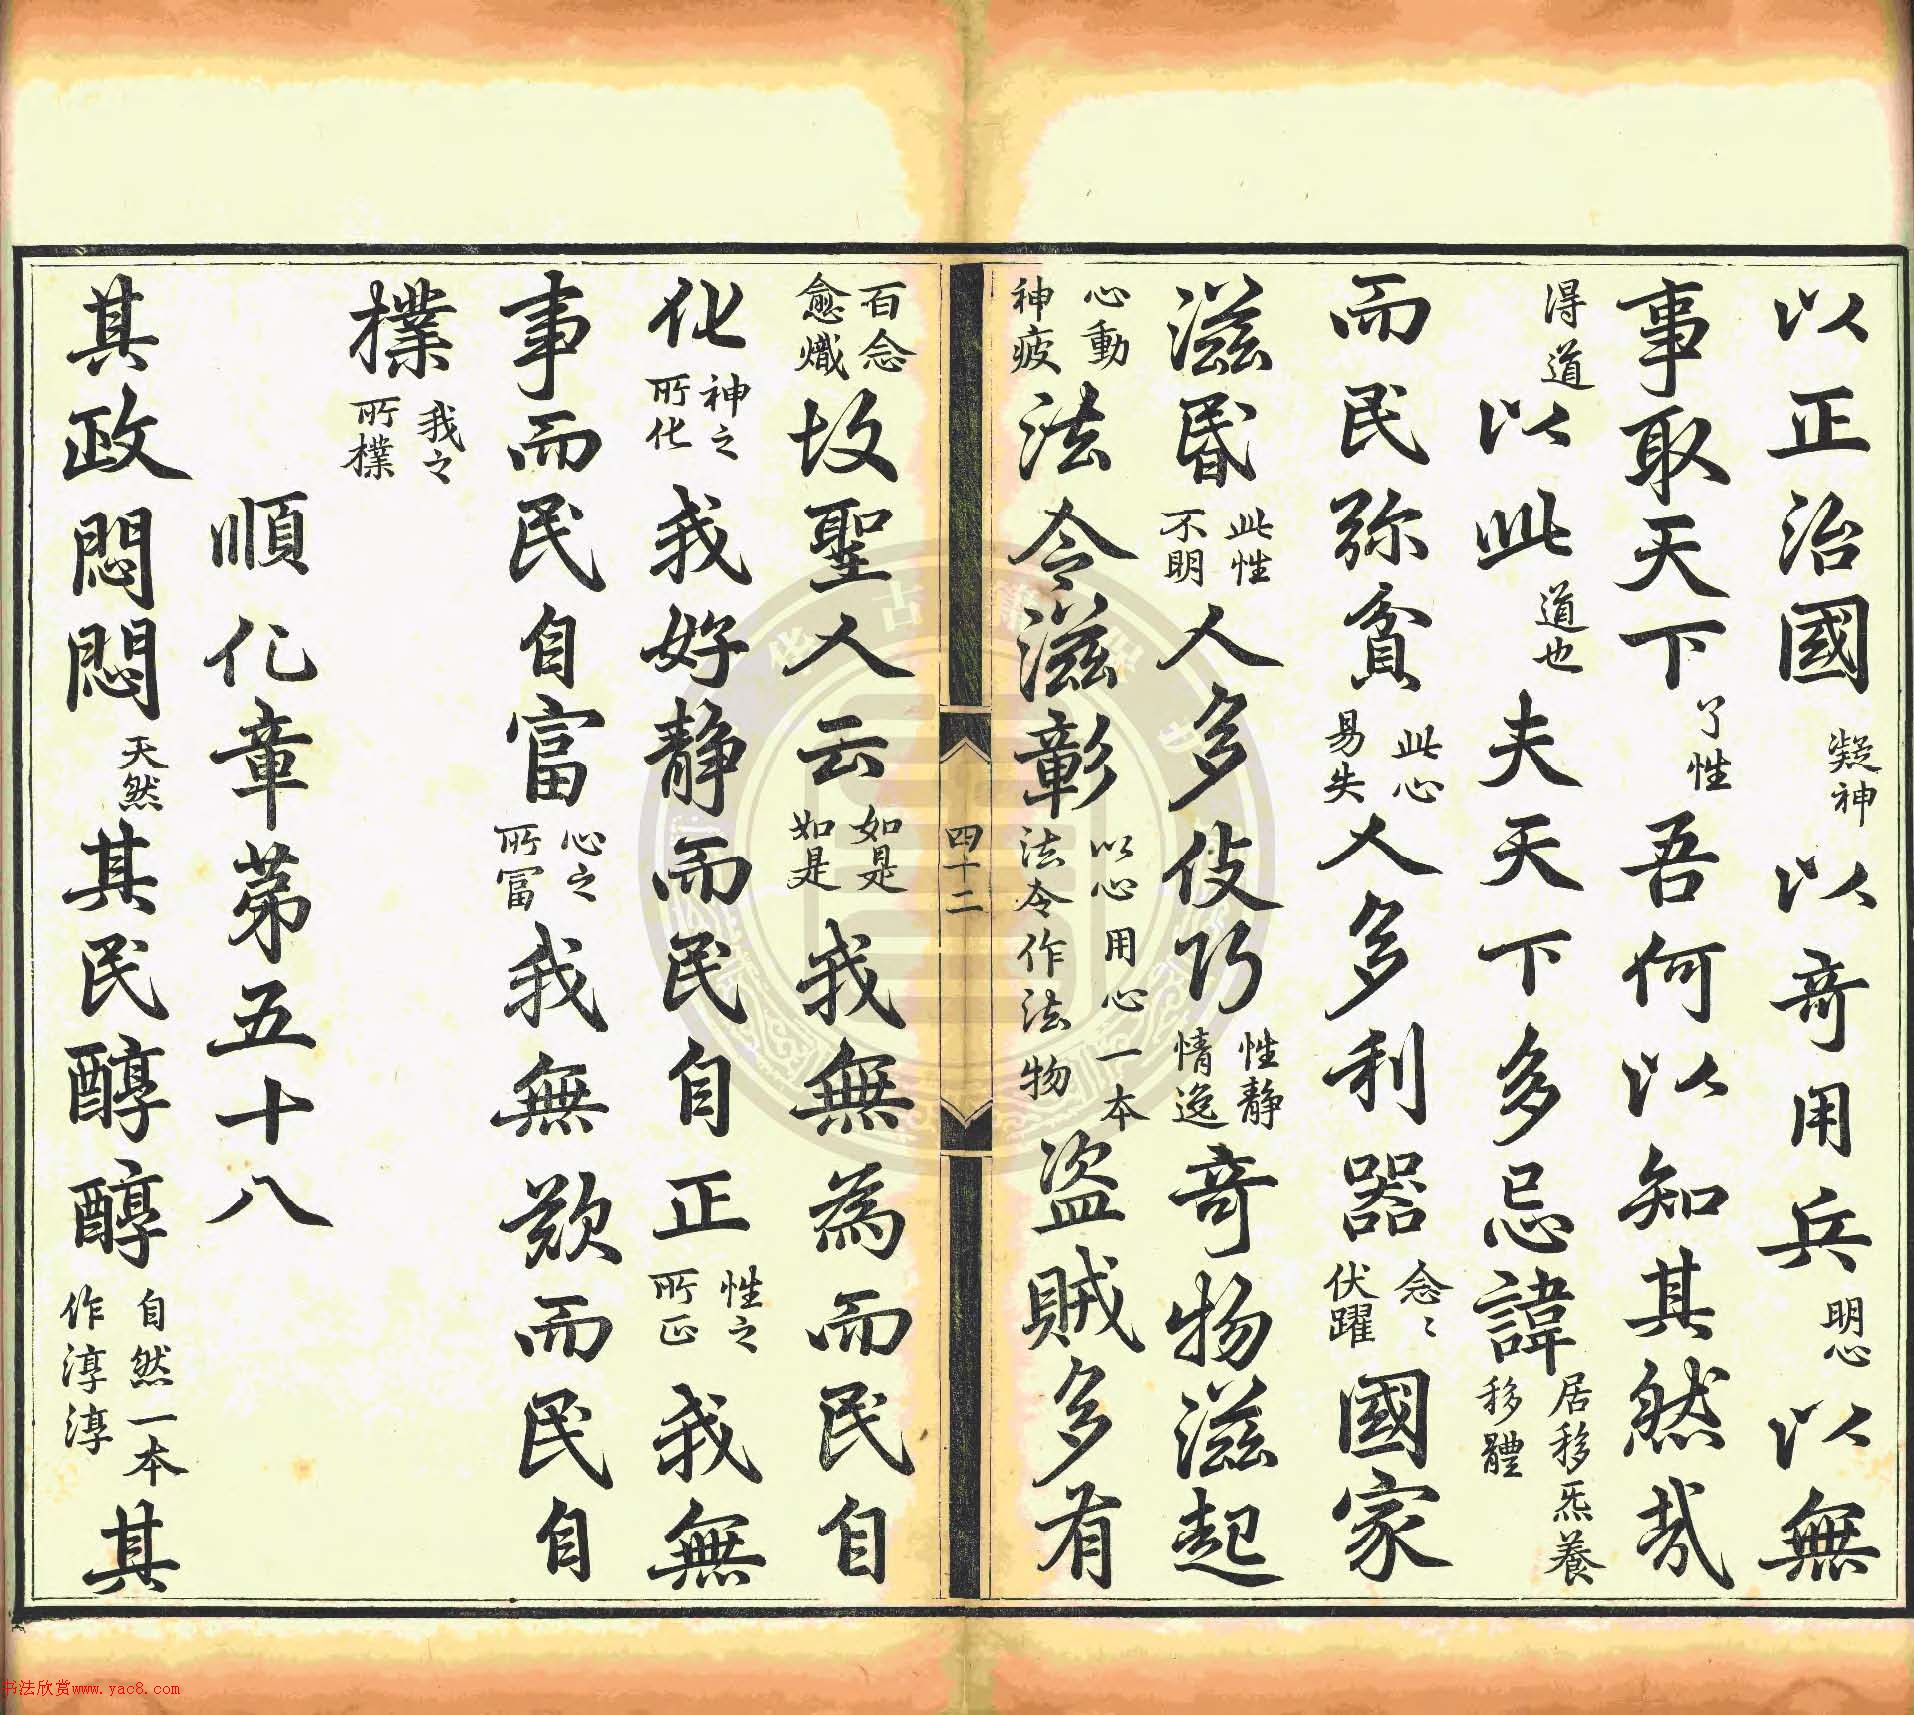 以正治國凝神以竒用兵明心以無
事取天下了性吾何以知其然哉
得道以此道也夫天下多忌諱居移炁養移體
而民弥貧此心易失人多利器念〻伏躍國家
滋昬此性不明人多伎巧性静情逸竒物滋起
心動神疲法令滋彰以心用心一本法令作法物盜賊多有
四十二
百念愈熾故聖人云如是如是我無為而民自
化神之所化我好静而民自正性之所正我無
事而民自富心之所富我無欲而民自
樸我之所樸
順化章第五十八
其政悶悶天然其民醇醇自然一本作淳淳其
书法欣赏www.yac8.com